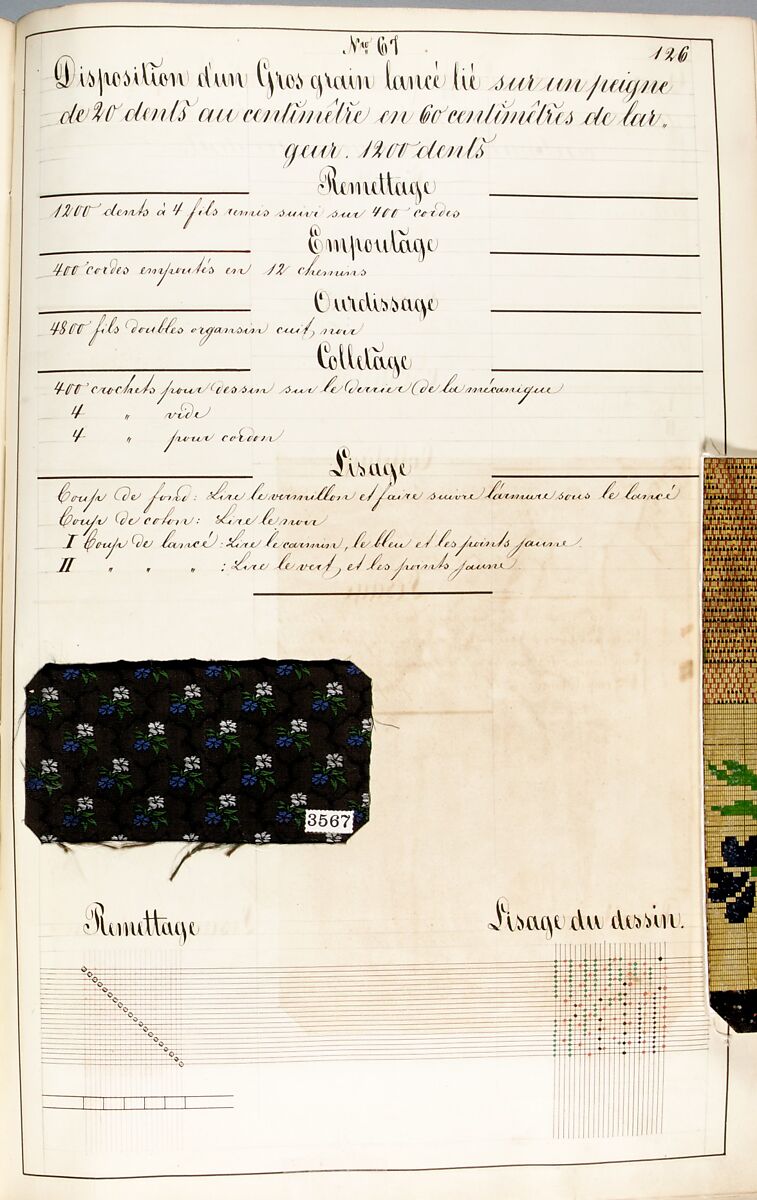 Nro 67
126
Disposition d'un Gros grain lancé lié sur un peigne
de 20 dents au centimêtre en 60 centimêtres de lar„
geur. 1200 dents
Remettage
1200 dents à 4 fils remis suivi sur 400 cordes
Empoutage
400 cordes empoutés en 12 chemins
Ourdissage
4800 fils doubles organsin cuit, noir
Colletage
400 crochets pour dessin sur le derrier de la mécanique
4 „ vide
4 „ pour cordon
Lisage
Coup de fond: Lire le vermillon et faire suivre l'armure sous le lancé
Coup de coton: Lire le noir
I Coup de lancé: Lire le carmin, le bleu et les points jaune.
II „ „ „ : Lire le vert, et les points jaune.
3567
Remettage
Lisage du dessin.